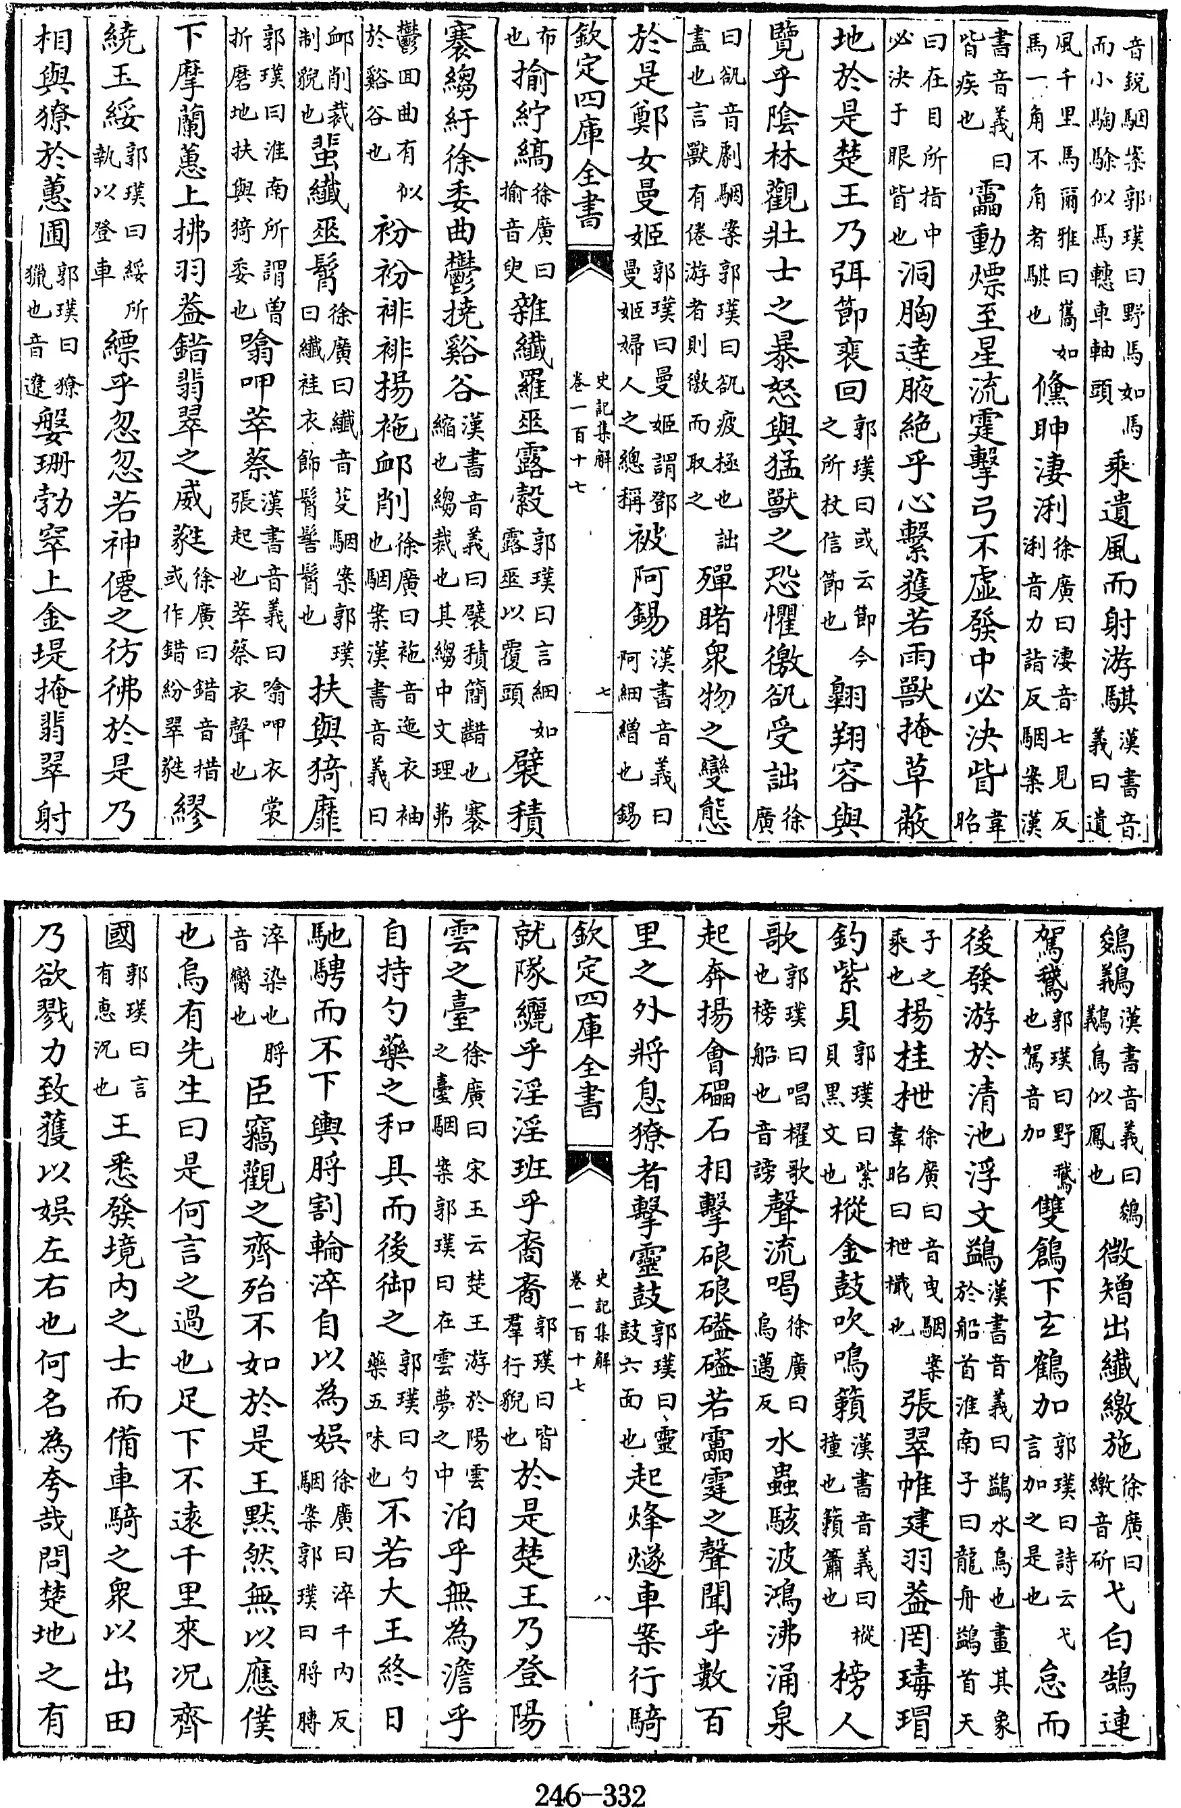 音銳駰案郭璞曰野馬如馬而小騊駼似馬轊車軸頭乘遺風而射游騏漢書音義曰遺
風千里馬爾雅曰巂如馬一角不角者騏也儵眒凄浰徐廣曰凄音七見反浰音力詣反駰案漢
書音義曰皆疾也靁動熛至星流霆擊弓不虛發中必決眥韋昭
曰在目所指中必決于眼眥也洞胸達腋絕乎心繫獲若雨獸掩草蔽
地於是楚王乃弭節裵回郭璞曰或云節今之所杖信節也翺翔容與
覽乎陰林觀壯士之暴怒與猛獸之恐懼徼㕁受詘徐廣
曰㕁音劇駰案郭璞曰㕁疲極也詘盡也言獸有倦游者則徼而取之殫睹衆物之變態
於是鄭女曼姬郭璞曰曼姬謂鄧曼姬婦人之總稱被阿錫漢書音義曰阿細繒也錫
欽定四庫全書 史記集解 卷一百十七 七
布也揄紵縞徐廣曰揄音臾雜纖羅垂露縠郭璞曰言細如露垂以覆頭襞積
褰縐紆徐委曲鬱撓谿谷漢書音義曰襞積簡齰也褰縮也縐裁也其縐中文理茀
鬱回曲有似於谿谷也衯衯裶裶揚袘卹削徐廣曰袘音迤衣袖也駰案漢書音義曰
卹削裁制貌也蜚纖垂髾徐廣曰纖音芟駰案郭璞曰纖袿衣飾髾髻髾也扶與猗靡
郭璞曰淮南所謂曾折磨地扶與猗委也噏呷萃蔡漢書音義曰噏呷衣裳張起也萃蔡衣聲也
下摩蘭蕙上拂羽蓋錯翡翠之威蕤徐廣曰錯音措或作錯紛翠蕤繆
繞玉綏郭璞曰綏所執以登車縹乎忽忽若神僊之彷彿於是乃
相與獠於蕙圃郭璞曰獠獵也音遼媻珊勃窣上金堤掩翡翠射
鵕鸃漢書音義曰鵕鸃鳥似鳳也微矰出纖繳施徐廣曰繳音斫弋白鵠連
駕鵞郭璞曰野鵞也駕音加雙鶬下玄鶴加郭璞曰詩云弋言加之是也怠而
後發游於清池浮文鷁漢書音義曰鷁水鳥也畫其象於船首淮南子曰龍舟鷁首天
子之乘也揚桂枻徐廣曰音曳駰案韋昭曰枻檝也張翠帷建羽蓋罔瑇瑁
釣紫貝郭璞曰紫貝黑文也摐金鼓吹鳴籟漢書音義曰摐撞也籟簫也榜人
歌郭璞曰唱櫂歌也榜船也音謗聲流喝徐廣曰烏邁反水蟲駭波鴻沸涌泉
起奔揚會礧石相擊硠硠礚礚若靁霆之聲聞乎數百
里之外將息獠者擊靈鼓郭璞曰靈鼓六面也起烽燧車案行騎
欽定四庫全書 史記集解 卷一百十七 八
就隊纚乎淫淫班乎裔裔郭璞曰皆羣行貌也於是楚王乃登陽
雲之臺徐廣曰宋玉云楚王游於陽雲之臺駰案郭璞曰在雲夢之中泊乎無為澹乎
自持勺藥之和具而後御之郭璞曰勺藥五味也不若大王終日
馳騁而不下輿脟割輪淬自以為娛徐廣曰淬千內反駰案郭璞曰脟膞
淬染也脟音臠也臣竊觀之齊殆不如於是王默然無以應僕
也烏有先生曰是何言之過也足下不遠千里來况齊
國郭璞曰言有惠况也王悉發境內之士而備車騎之衆以出田
乃欲戮力致獲以娛左右也何名為夸哉問楚地之有
246-332